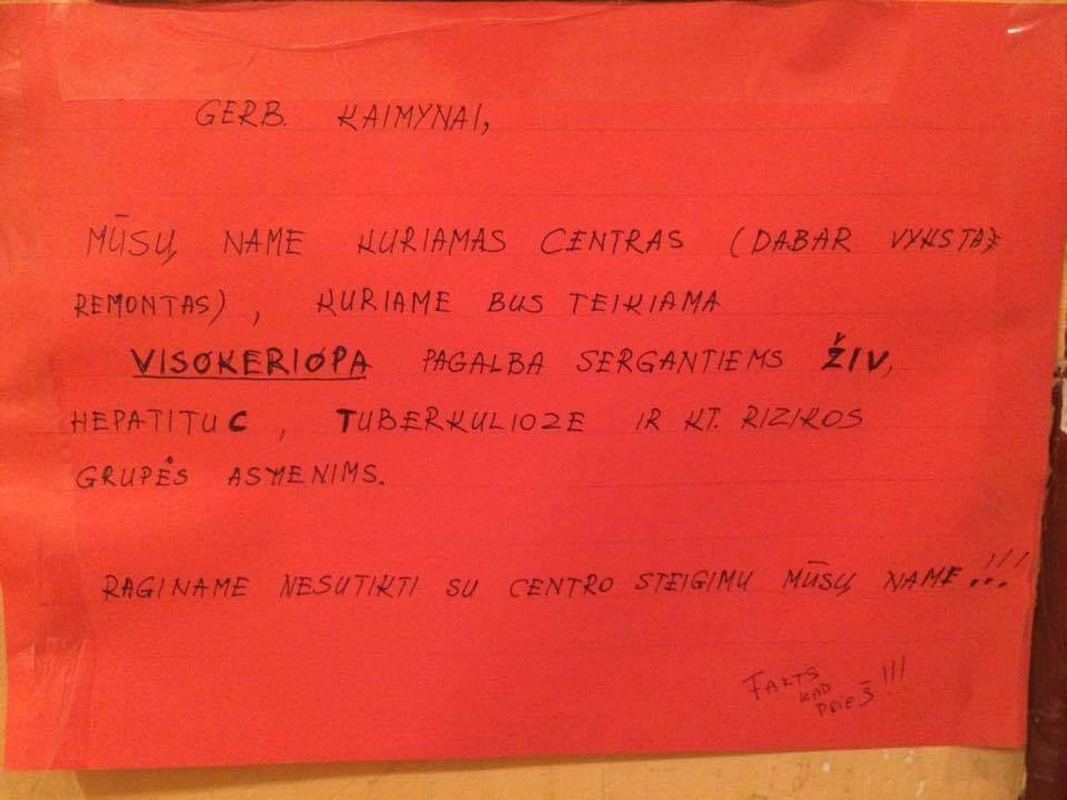 GERB. KAIMYNAI,
MŪSŲ NAME KURIAMAS CENTRAS (DABAR VYKSTA
REMONTAS), KURIAME BUS TEIKIAMA
VISOKERIOPA PAGALBA SERGANTIEMS ŽIV,
HEPATITU C, TUBERKULIOZE IR KT. RIZIKOS
GRUPĖS ASMENIMS.
RAGINAME NESUTIKTI SU CENTRO STEIGIMU MŪSŲ NAME...!!!
FAKTS
KAD
PRIEŠ!!!